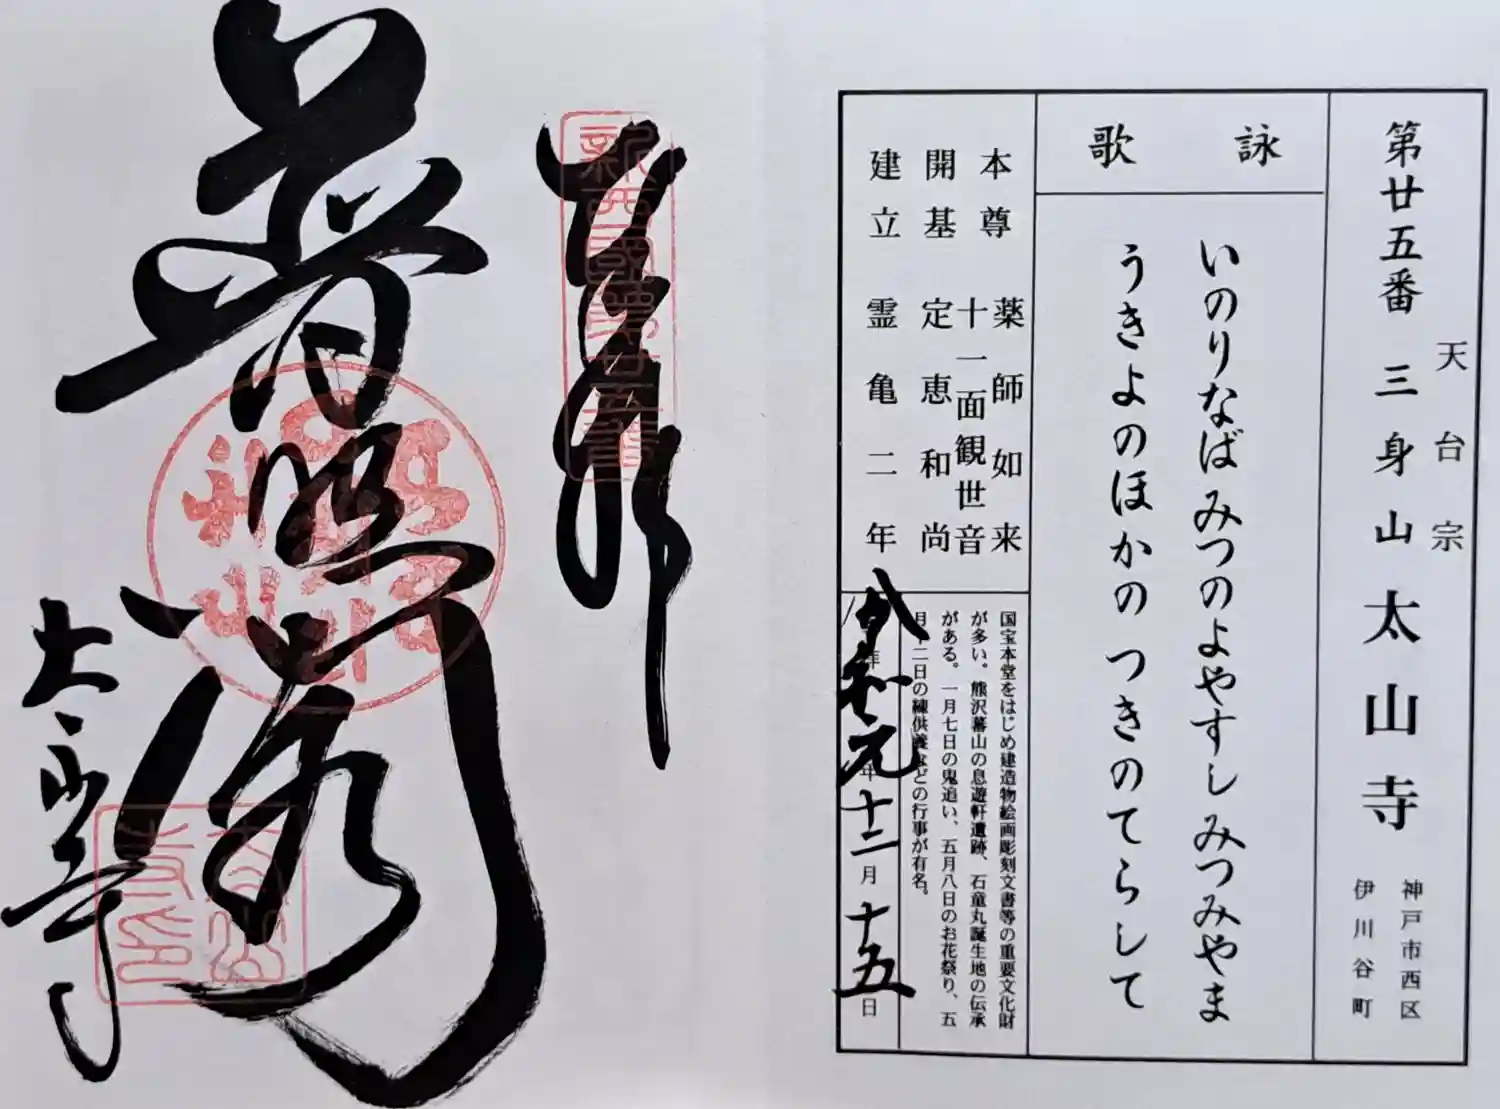 第廿五番 三身山 太山寺
天台宗
神戸市西区
伊川谷町
詠歌
いのりなば みつのよやすし みつみやま
うきよのほかの つきのてらして
本尊 薬師如来
十一面観世音
開基 定恵和尚
建立 霊亀二年
国宝本堂をはじめ建造物絵画彫刻文書等の重要文化財
が多い。熊沢蕃山の息遊軒遺跡、石童丸誕生地の伝承
がある。一月七日の鬼追い、五月八日のお花祭り、五
月十二日の練供養などの行事が有名。
令和元年十二月十五日
奉拝
新西國第廿五番
普照閣
太山寺